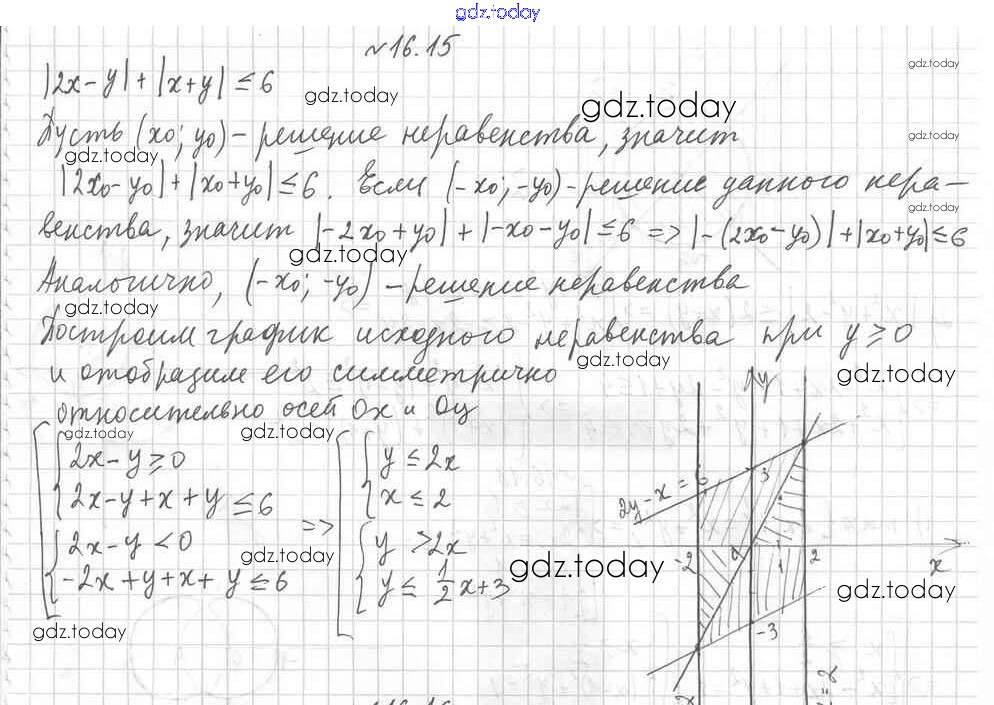 gdz.today
№16.15
|2x-y|+|x+y|≤6
gdz.today
gdz.today
gdz.today
Пусть (x0; y0) - решение неравенства, значит
gdz.today
gdz.today
|2x0-y0|+|x0+y0|≤6. Если (-x0; -y0) - решение данного нера-
gdz.today
венства, значит |-2x0+y0|+|-x0-y0|≤6 => |-(2x0-y0)|+|x0+y0|≤6
gdz.today
Аналогично, (-x0; -y0) - решение неравенства
gdz.today
Построим график исходного неравенства при y≥0
gdz.today
gdz.today
и отобразим его симметрично
относительно осей Ox и Oy
gdz.today
gdz.today
2x-y≥0
2x-y+x+y≤6
2x-y<0
-2x+y+x+y≤6
=>
y≤2x
x≤2
y>2x
y≤1/2x+3
gdz.today
gdz.today
gdz.today
gdz.today
y
2y-x=6
3
-2
0
1
2
x
-3